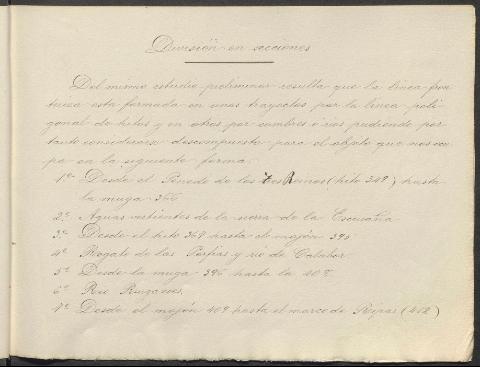 División en secciones
Del mismo estudio preliminar resulta que la línea fron
teriza esta formada en unos trayectos por la línea poli
gonal de hitos y en otros por cumbres o rios pudiendo por
tanto considerarse descompuesta para el objeto que nos ocu
pa en la siguiente forma.
1ª Desde el Penedo de los tes Reinos (hito 349) hasta
la muga 366
2ª Aguas vertientes de la sierra de la Escusaña
3ª Desde el hito 369 hasta el mojón 395
4ª Regato de las Porfias y rio de Calabor
5ª Desde la muga 396 hasta la 407
6ª Rio
7ª Desde el mojón 409 hasta el marco de Rejas (412)